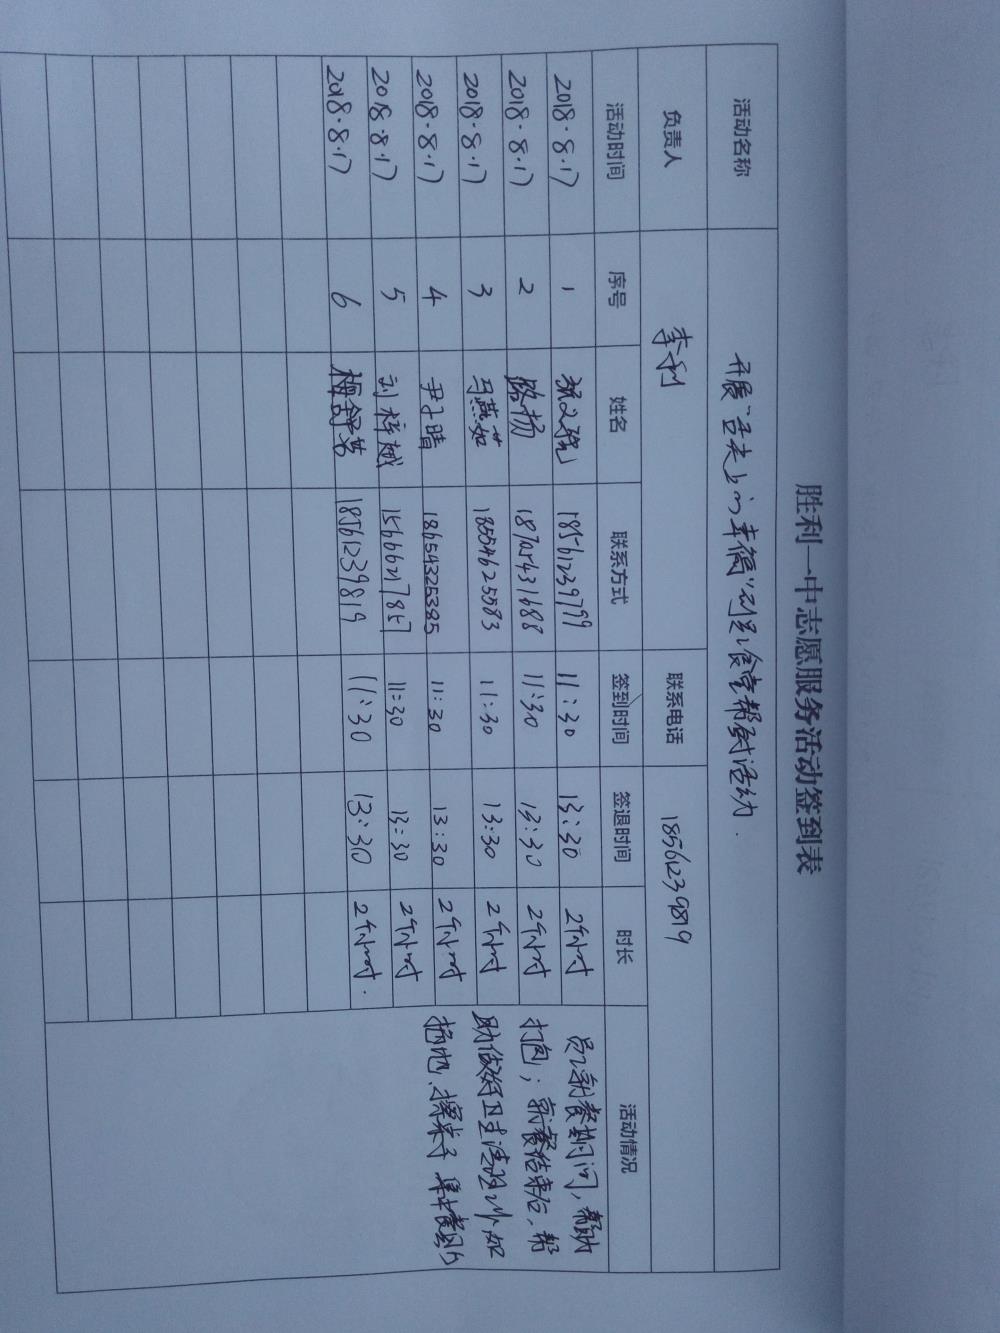 胜利一中志愿服务活动签到表
活动名称 开展“舌尖上的幸福”创星食堂帮厨活动.
负责人 李利 联系电话 18561239819
活动时间 序号 姓名 联系方式 签到时间 签退时间 时长 活动情况
2018.8.17 1 18561239799 11:30 13:30 2个小时
2018.8.17 2 路杨 18705431688 11:30 13:30 2个小时
2018.8.17 3 马燕茹 18554625583 11:30 13:30 2个小时
2018.8.17 4 尹子晴 18654325385 11:30 13:30 2个小时
2018.8.17 5 刘梓斌 15666217857 11:30 13:30 2个小时
2018.8.17 6 18561239819 11:30 13:30 2个小时.
员工就餐期间,帮助
打包;就餐结束后、帮
助做好卫生清理工作,如
拖地、擦桌子